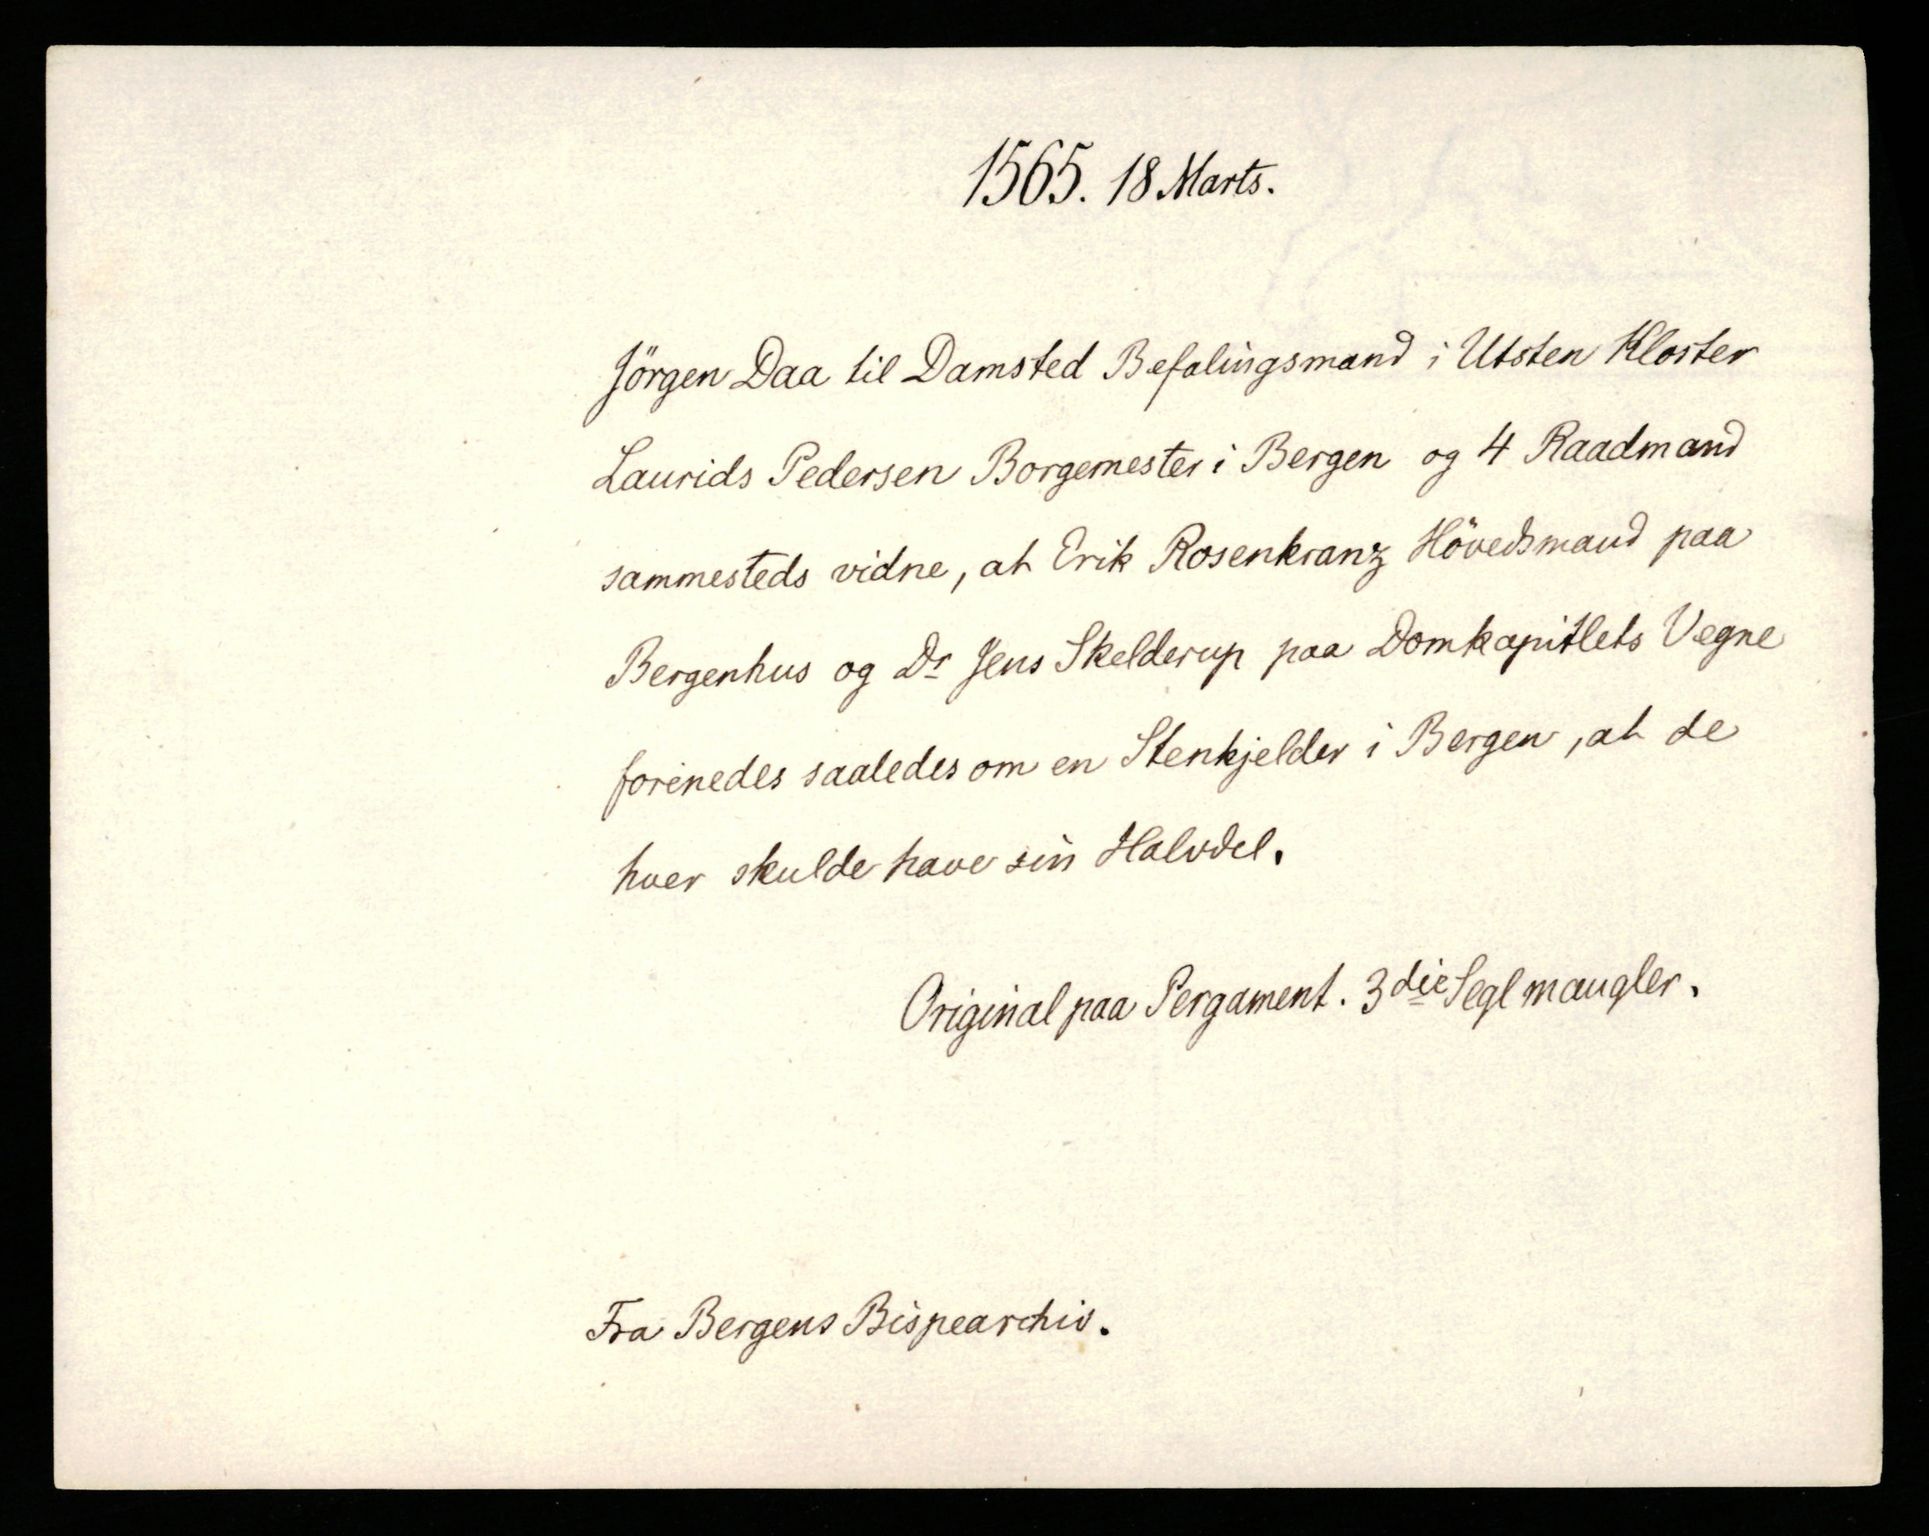 1565. 18 Marts.
Jörgen Daa til Damsted Befalingsmand i Utsten Kloster
Laurids Pedersen Borgemester i Bergen og 4 Raadmand
sammesteds vidne, at Erik Rosenkranz Hövedsmand paa
Bergenhus og Dr Jens Skelderup paa Domkapitlets Vegne
forenedes saaledes om en Stenkjelder i Bergen, at de
hver skulde have sin Halvdel.
Original paa Pergament. 3die Segl mangler.
Fra Bergens Bispearchiv.